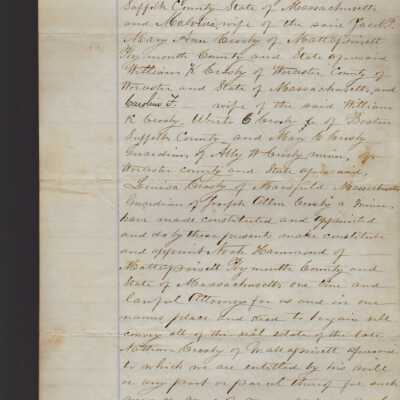 Suffolk County State of Massachusetts
and Malvina wife of the said Jacob P.
Mary Ann Crosby of Mattapoisett
Plymouth County and State aforesaid
William K Crosby of Worcester County of
Worcester and State of Massachusetts, and
Caroline F. wife of the said William
K Crosby, Uriah C Crosby of Boston
Suffolk County and May E Crosby
Guardian of Abby W Crosby minor, of
Worcester County and State aforesaid,
Louisa Crosby of Mansfield Massachusetts
Guardian of Joseph Allen Crosby a minor
have made constituted and appointed
and do by these presents make constitute
and appoint Noah Hammond of
Mattapoisett Plymouth County and
State of Massachusetts our true and
lawful Attorney for us and in our
names place and stead to bargain sell
convey all of the real estate of the late
Nathan Crosby of Mattapoisett aforesaid
to which we are entitled by his will
or any part or parcel thereof for such